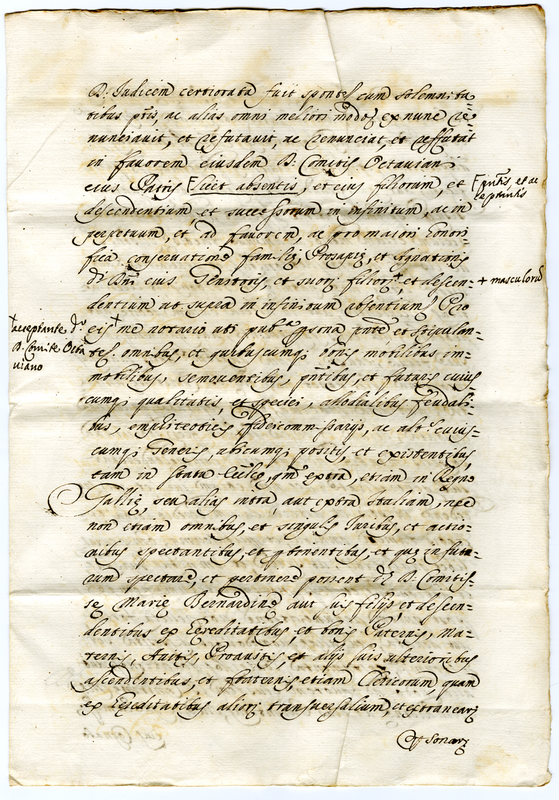 D. Iudicem certiorata fuit sponte, cum solemnita=
tibus ptis, ac alias omni meliori modo, ex nunc re=
nunciavit, et refutavit, ac renunciat, et refutat
in favorem eiusdem D. Comitis Octaviani
eius Patris licet absentis, et eius filiorum, et
pntis, et ac
ceptantis
descendentium et successorum in infinitum, ac in
perpetuum, et ad favorem, ac pro maiori honori=
fica conservatione familiæ, Prosapiæ, et Agnationis
eius Genitoris, et suor filior, et descen=
+ masculorū
dentium ut supra in infinitum absentium, Pro
acceptante do
D. Comite Octa
viano
eis me notario uti pub.ca psona pnte et stipulan=
te, omnibus, et quibuscumq bonis mobilibus im=
mobilibus, semoventibus, pntibus, et futuris cuius
cumq qualitatis, et speciei, allodialibus feudali=
bus, emphiteoticis, fideicommissarijs, ac alt cuius=
cumq generis, ubicumq positis, et existentibus
tam in statu Eccleo, qm extra, etiam in Regno
Galliæ, seu alias intra, aut extra Italiam, nec
non etiam omnibus, et singulis Iuribus, et actio=
nibus spectantibus, et ptinentibus, et quæ in futu=
rum spectare, et pertinere possent D. Comitis=
sæ Mariæ Bernardinæ aut suis filijs, et descen=
dentibus ex hereditatibus, et bonis Paternis, Ma=
ternis, Avitis, Proavitis, et alijs suis ulterioribus
ascendentibus, et fraternis, etiam Clericorum quam
ex hereditatibus alior transversalium, et extranear